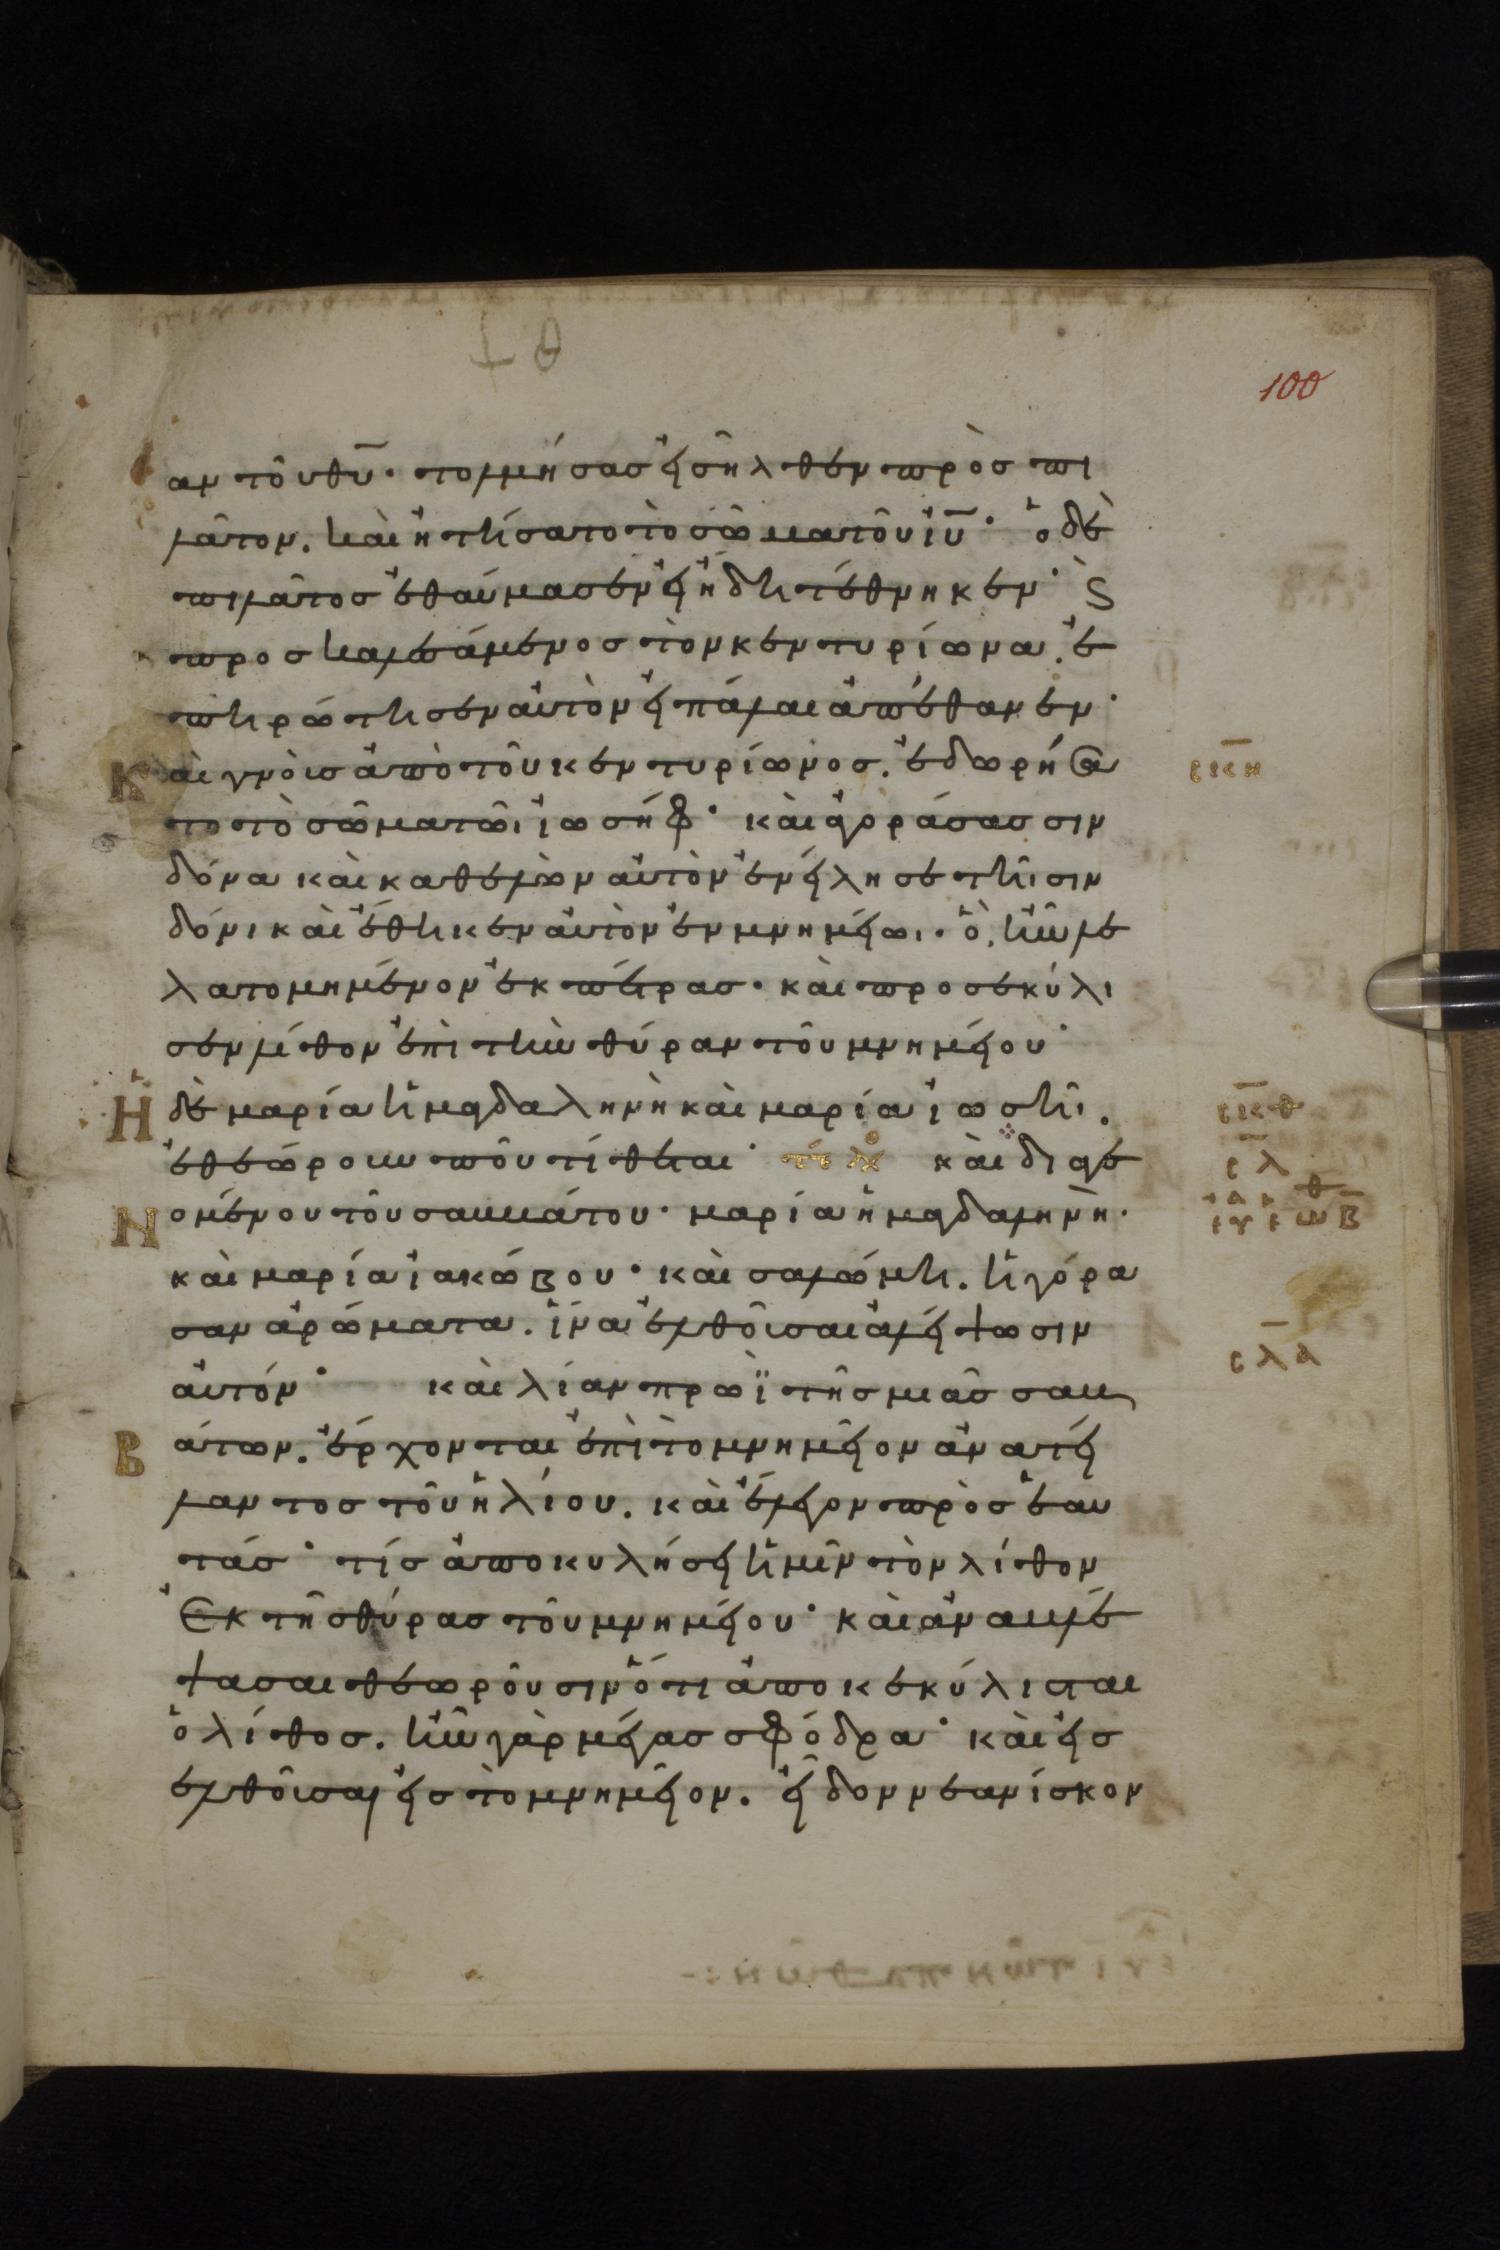 100
αν τοῦ θ̅υ̅· τολμήσας εἰσῆλθεν πρὸς πι
λᾶτον. καὶ ἠτήσατο τὸ σῶμα τοῦ ἰ̅υ̅· ὁ δὲ
πιλᾶτος ἐθαύμασεν εἰ ἤδη τέθνηκεν· Ϛ
προσκαλεσάμενος τὸν κεντυρίωνα. ἐ
πηρώτησεν αὐτὸν εἰ πάλαι ἀπέθανεν·
Καὶ γνοὺς ἀπὸ τοῦ κεντυρίωνος. ἐδωρήσα
το τὸ σῶμα τῶι ἰωσήφ· καὶ ἀγοράσας σιν
δόνα καὶ καθελὼν αὐτὸν ἐνείλησε τῆι σιν
δόνι καὶ ἔθηκεν αὐτὸν ἐν μνημείωι· ὃ, ἦν λε
λατομημένον ἐκ πέτρας· καὶ προσεκύλι
σεν λίθον ἐπὶ τὴν θύραν τοῦ μνημείου·
Ἡ δὲ μαρία ἡ μαγδαληνὴ καὶ μαρία ἰωσῆ.
ἐθεώρουν ποῦ τίθεται· τέλ καὶ διαγε
Νομένου τοῦ σαββάτου· μαρία ἡ μαγδαληνὴ·
καὶ μαρία ἰακώβου· καὶ σαλώμη. ἠγόρα
σαν ἀρώματα. ἵνα ἐλθοῦσαι ἀλείψωσιν
αὐτόν· καὶ λίαν πρωῒ τῆς μιᾶς σαβ
Βάτων. ἔρχονται ἐπὶ τὸ μνημεῖον ἀνατεί
λαντος τοῦ ἡλίου. καὶ ἔλεγον πρὸς ἑαυ
τάς· τίς ἀποκυλήσει ἡμῖν τὸν λίθον
Ἐκ τῆς θύρας τοῦ μνημείου· καὶ ἀναβλέ
ψασαι θεωροῦσιν ὅτι ἀποκεκύλισται
ὁ λίθος. ἦν γὰρ μέγας σφόδρα· καὶ εἰσ
ελθοῦσαι εἰς τὸ μνημεῖον. εἶδον νεανίσκον
ϲκη
ϲκθ
ϲλ
ϲλα